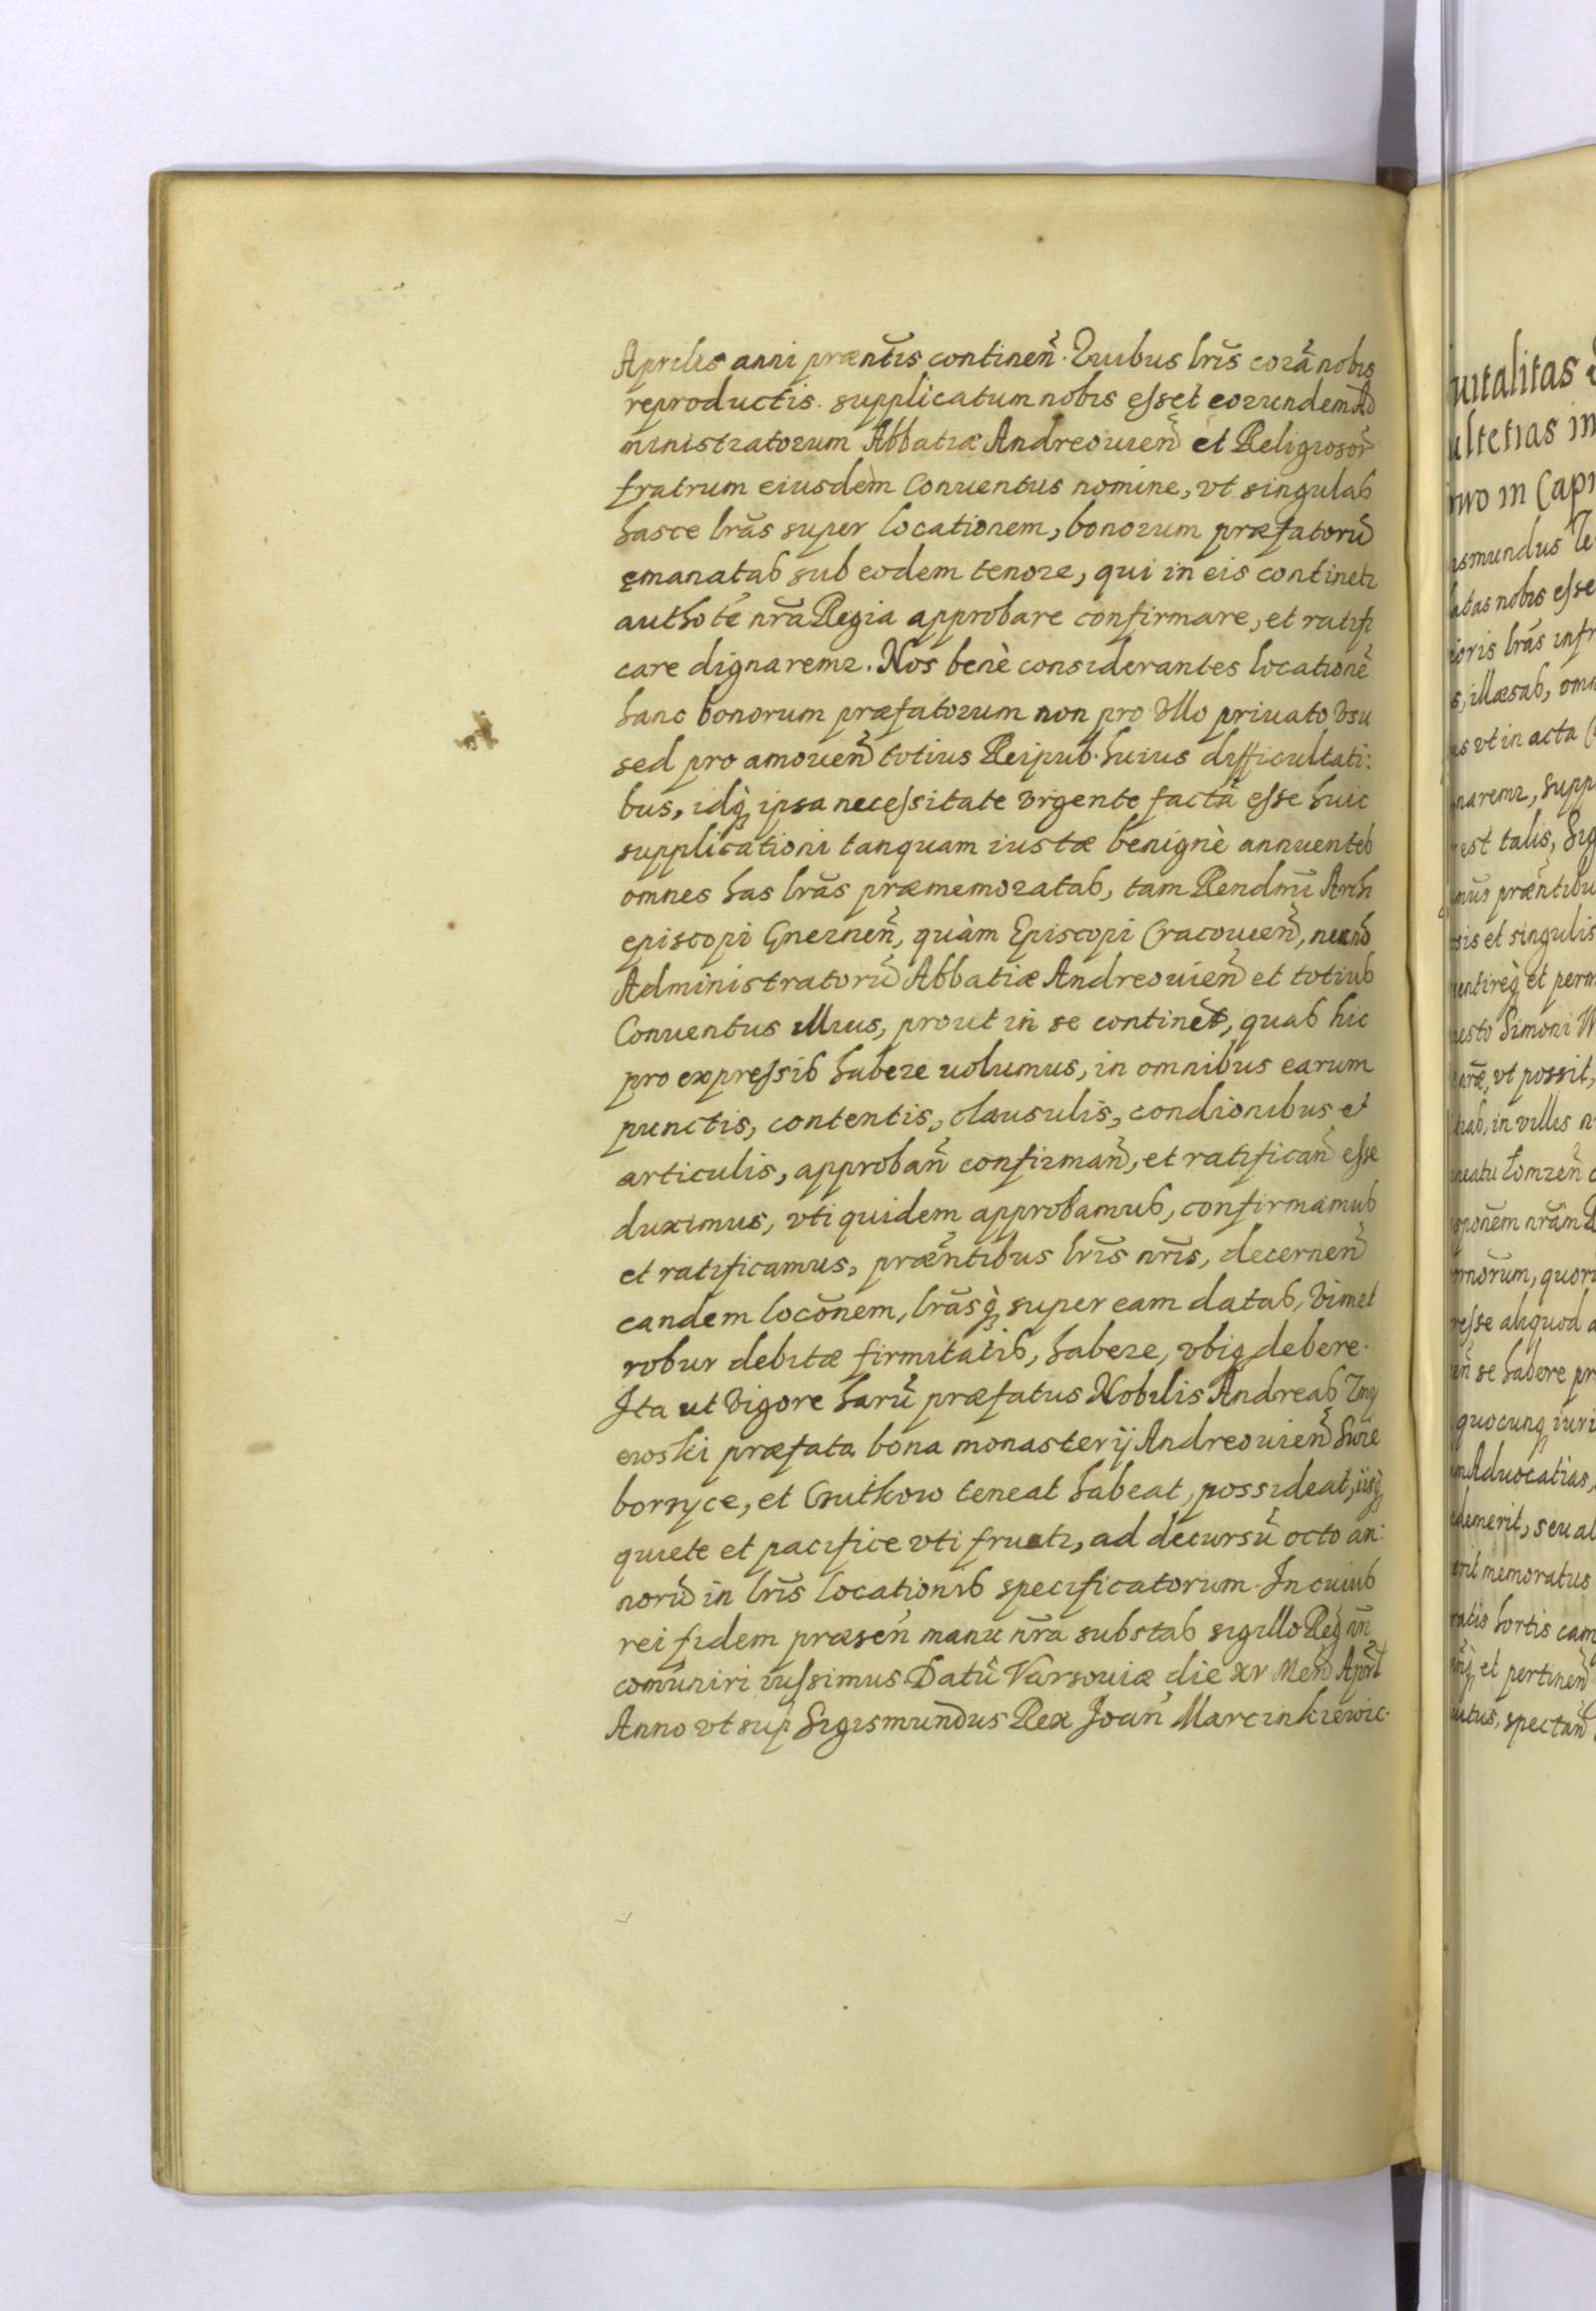 Aprilis anni præntis continen. Quibus lris corã nobis
reproductis supplicatum nobis esset eorundem Ad
ministratorum Abbatiæ Andreouien et Religiosor
fratrum eiusdem Conuentus nomine, vt singulas
hasce lras super locationem, bonorum præfatorũ
emanatas sub eodem tenore, qui in eis continetr
authote nra Regia approbare confirmare, et ratifi
care dignaremr. Nos benè considerantes locationẽ
hanc bonorum præfatorum non pro vllo priuato vsu
sed pro amouen totius Reipub. huius difficultati:
bus, idq ipsa necessitate vrgente factã esse huic
supplicationi tanquam iustæ benignè annuentes
omnes has lras præmemoratas, tam Rendmi Arch
episcopi Gneznen, quàm Episcopi Cracouien, necno
Administratorũ Abbatiæ Andreouien et totius
Conuentus illius, prout in se continet, quas hic
pro expressis habere uolumus, in omnibus earum
punctis, contentis, clausulis, condionibus et
articulis, approban confirman, et ratifican esse
duximus, vti quidem approbamus, confirmamus
et ratificamus, præntibus lris nris, decernen
eandem loconem, lrasq super eam datas, vim et
robur debitæ firmitatis, habere, vbiq debere.
Ita ut vigore harũ præfatus Nobilis Andreas Zmij
ewski præfata bona monasterij Andreouien Swie
borzyce, et Gutkow teneat habeat, possideat, iisq
quiete et pacifice vti fruatr, ad decursũ octo an:
norũ in lris locationis specificatorum. In cuius
rei fidem præsen manu nra substas sigillo Reg nri
comũniri iussimus. Datũ Varsouiæ die xv Mens April
Anno vt sup Sigismundus Rex Joan Marcinkiewic.
uitalitas
ultetias in
wo in Capi
ismundus
atas nobis esse
ioris lras infr
s, illæsas, omn
as vt in acta
naremr, supp
est talis, Sig
mus præntibu
sis et singulis
entireq et perm
usto Simoni W
nræ, vt possit,
has, in villis n
neatu Łomzen
sponem nram
rnorum, quor
esse aliquod a
en se habere pr
quocunq iuri
m Aduocatias,
demerit, seu al
erit memoratus
ratis hortis cam
nq et pertinen
utus, spectan